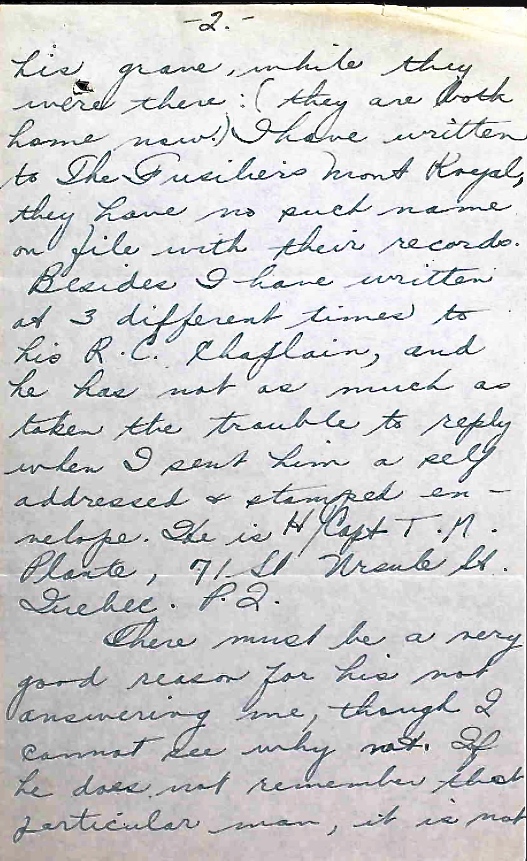 -2.-
his grave, while they
were there: (they are both
home now!) I have written
to The Fusiliers Mont Royal,
they have no such name
on file with their records.
Besides I have written
at 3 different times to
his R.C. Chaplain, and
he has not as much as
taken the trouble to reply
when I sent him a self
addressed & stamped en-
velope. He is H/Capt T. M.
Plante, 71 St Ursule St.
Quebec. P.Q.
There must be a very
good reason for his not
answering me, though I
cannot see why not. If
he does not remember that
particular man, it is not